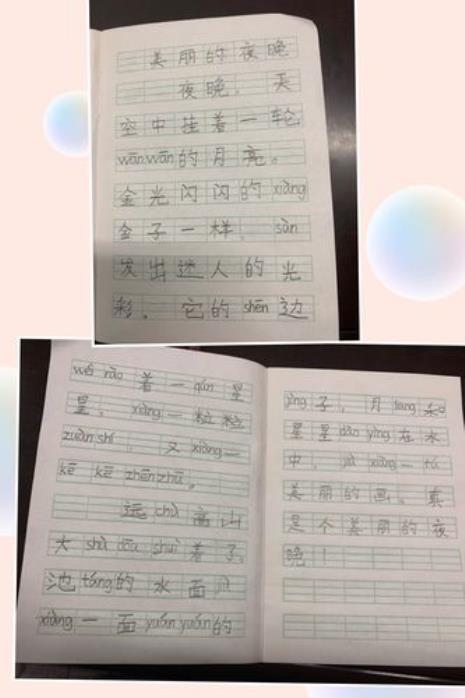 美丽的夜晚
夜晚，天
空中挂着一轮
wānwān的月亮。
金光闪闪的xiàng
金子一样，sàn
发出迷人的光
彩。它的shēn边
wéi rào着一qún星
星，xiàng一粒粒
zuàn shí，又xiàng一
kē kē zhēn zhū。
远chù高山
大shù dōu shuì着了。
池táng的水面jiù
xiàng一面yuán yuán的
jìng子，月liang和
星星dào yìng在水
中，jiù xiàng一fú
美丽的画。真
是个美丽的夜
晚！